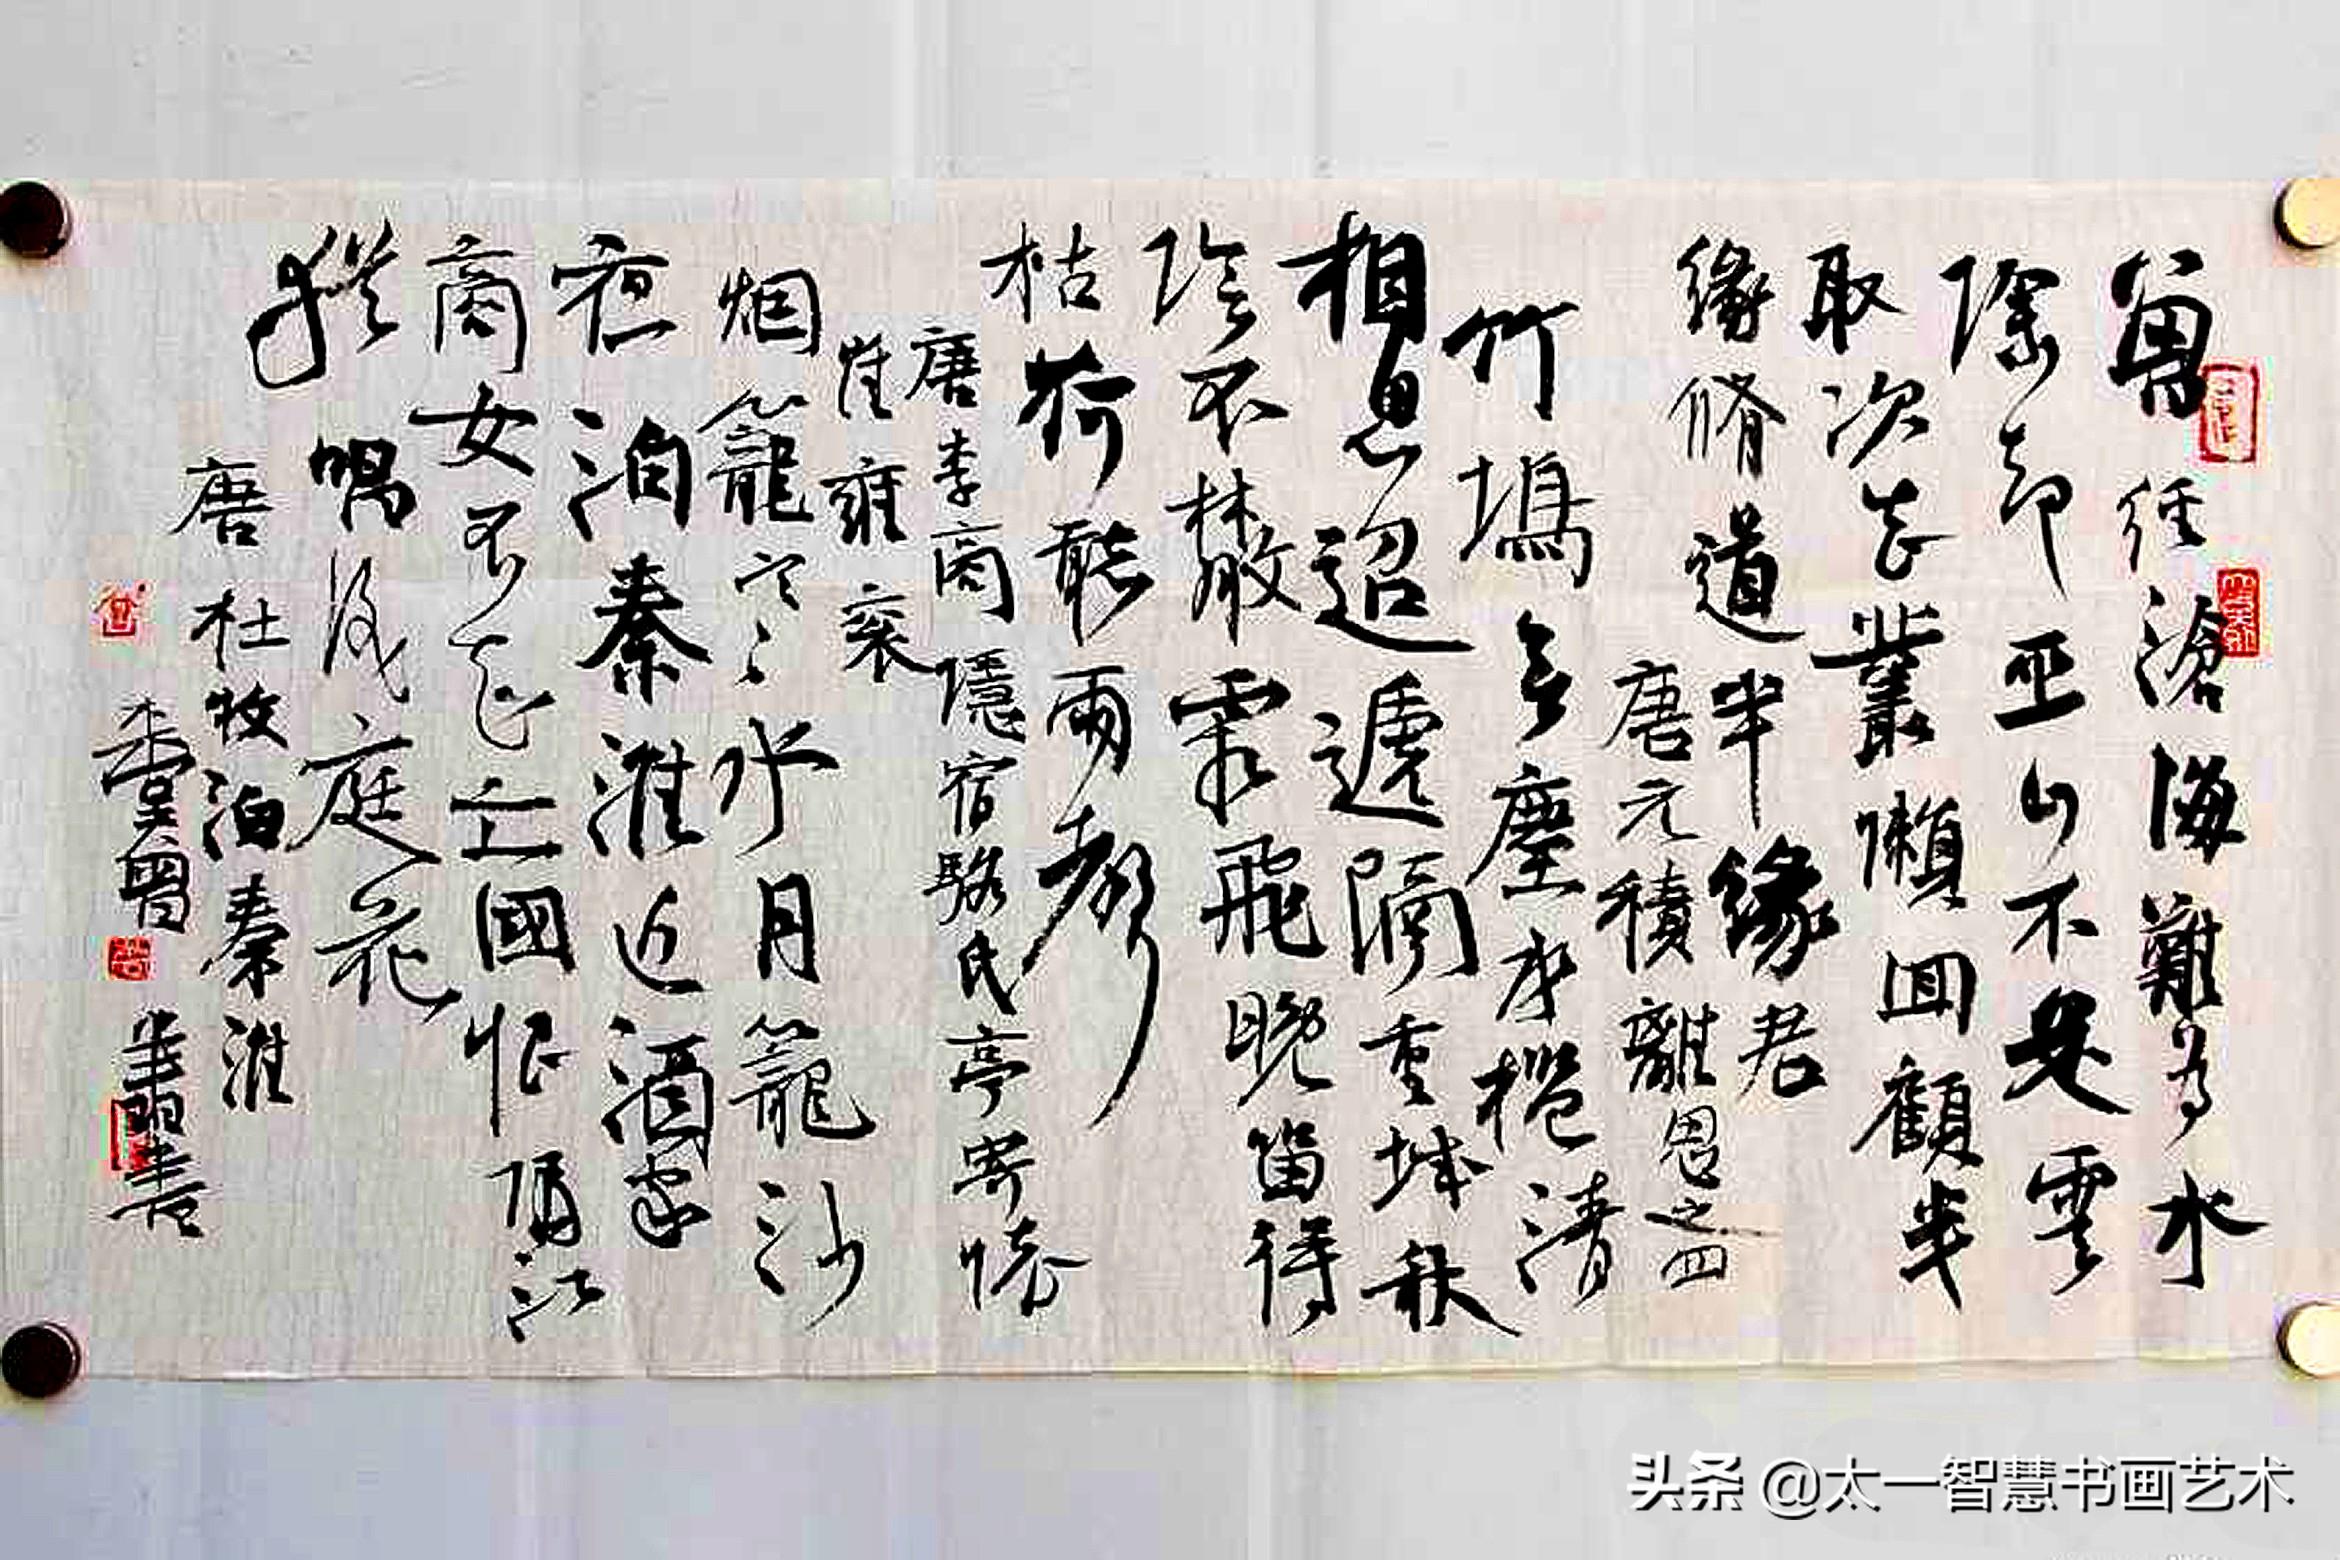 曾經滄海難為水
除却巫山不是雲
取次花叢懶回顧半
緣脩道半緣君
唐元積離思之四
竹塢無塵水檻清
相思迢遞隔重城秋
陰不散霜飛晚留得
枯荷聽雨聲
唐李商隱宿駱氏亭寄懷
崔雍崔袞
烟籠寒水月籠沙
夜泊秦淮近酒家
商女不知亡國恨隔江
猶唱後庭花
唐杜牧泊秦淮
書
头条 @太一智慧书画艺术